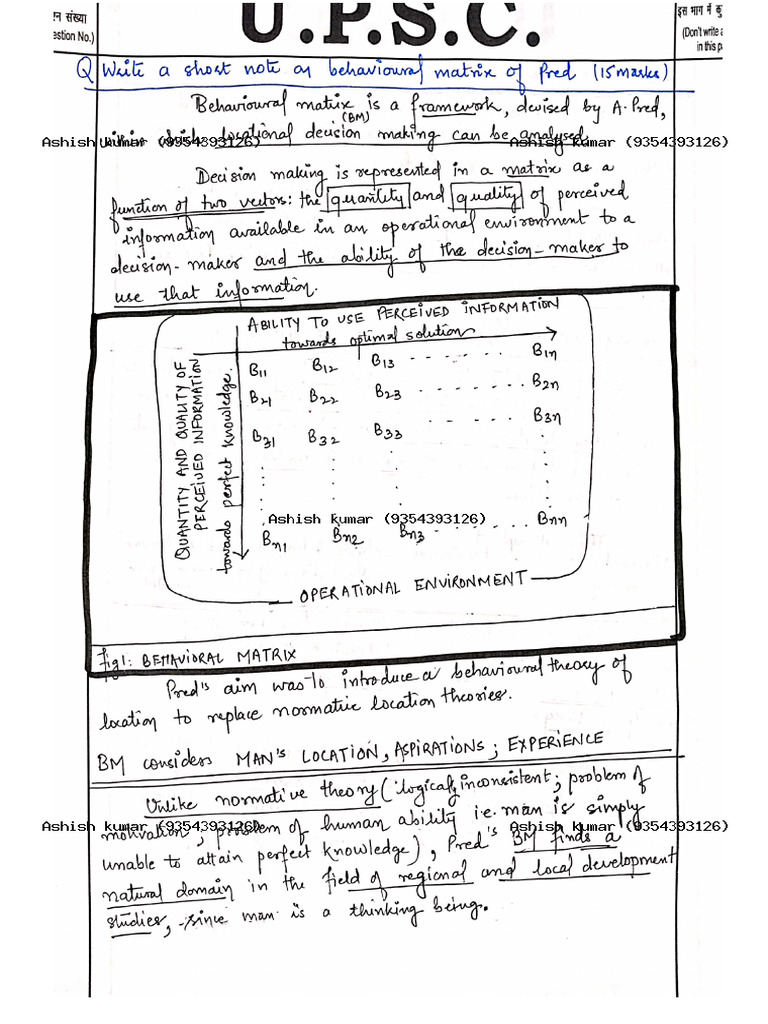 न संख्या
estion No.)
U.P.S.C.
इस भाग में कु
(Don't write a
in this p
Q Write a short note on behavioural matrix of Pred (15 marks)
Behavioural matrix is a framework, devised by A. Pred,
(BM)
locational decision making can be analysed.
Ashish kumar (9354393126)
Ashish kumar (9354393126)
Decision making is represented in a matrix as a
function of two vectors: the quantity and quality of perceived
information available in an operational environment to a
decision-maker and the ability of the decision-maker to
use that information.
ABILITY TO USE PERCEIVED INFORMATION
towards optimal solution
QUANTITY AND QUALITY OF
PERCEIVED INFORMATION
towards perfect knowledge.
B11 B12 B13 - - - - - - - B1n
B21 B22 B23 - - - - - - - B2n
B31 B32 B33 - - - - - B3n
Ashish kumar (9354393126)
Bn1 Bn2 Bn3 - - - - - Bnn
OPERATIONAL ENVIRONMENT
Fig1: BEHAVIORAL MATRIX
Pred's aim was to introduce a behavioural theory of
location to replace normative location theories.
BM considers MAN'S LOCATION, ASPIRATIONS; EXPERIENCE
Unlike normative theory (logically inconsistent; problem of
motivation; problem of human ability i.e. man is simply
Ashish kumar (9354393126)
Ashish kumar (9354393126)
unable to attain perfect knowledge), Pred's BM finds a
natural domain in the field of regional and local development
studies, since man is a thinking being.